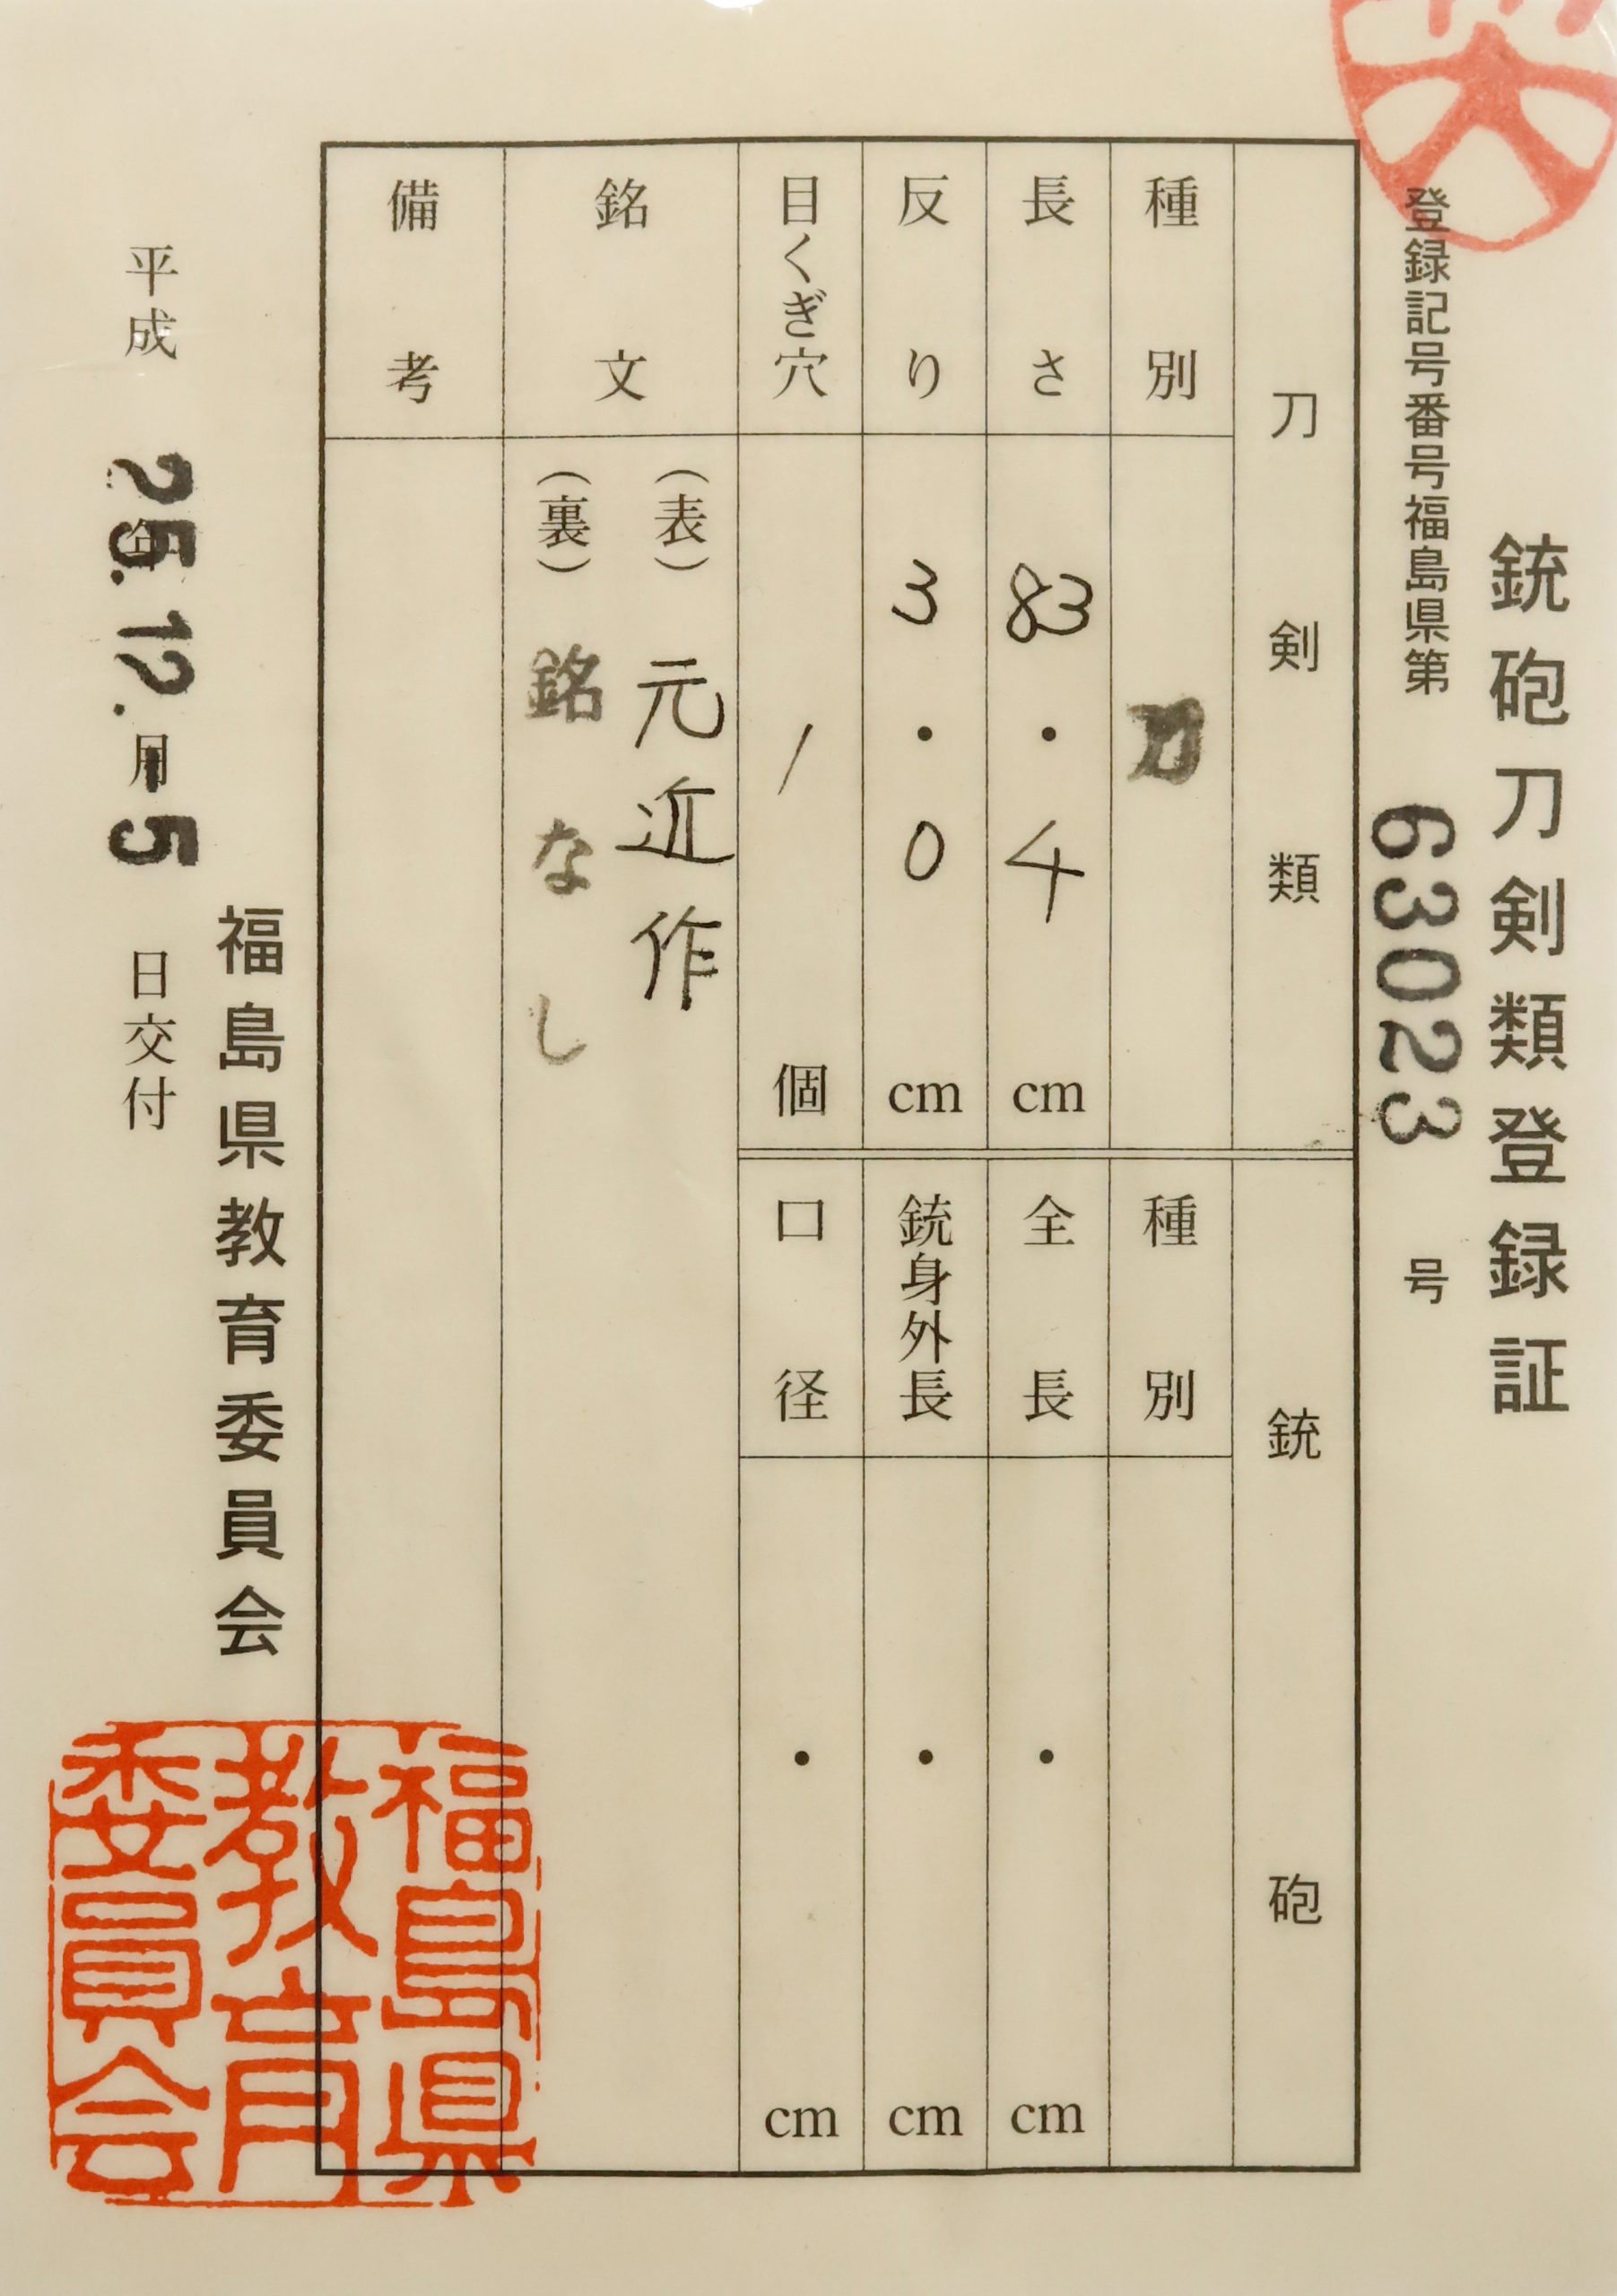 銃砲刀剣類登録証
登録記号番号福島県第 63023 号
刀剣類
種別 刀
長さ 83・4 cm
反り 3・0 cm
目くぎ穴 1 個
銃砲
種別
全長 ・ cm
銃身外長 ・ cm
口径 ・ cm
銘文
(表) 元近作
(裏) 銘なし
備考
平成 25.12.-5 年 月 日交付
福島県教育委員会
福島県
教育
委員会